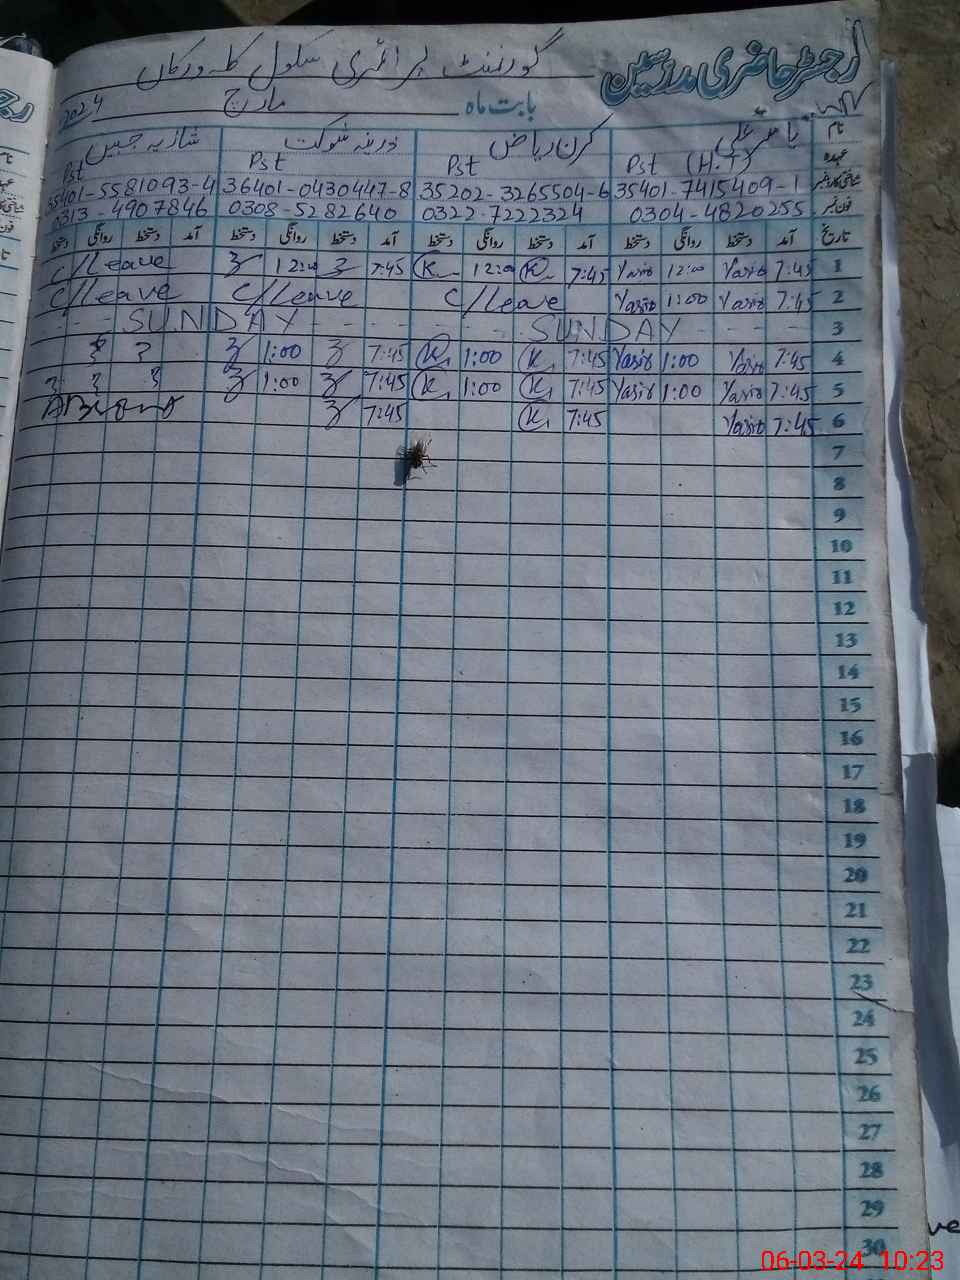 رجسٹر حاضری مدرسین
گورنمنٹ پرائمری سکول کلہ ورکاں
بابت ماہ مارچ 2024
نام یاسر علی کرن ریاض زرینہ شوکت شازیہ جبیں
عہدہ Pst (H.T) Pst Pst Pst
35401-7415409-1 35202-3265504-6 36401-0430447-8 35401-5581093-4
فون نمبر 0304-4820255 0322-7222324 0308-5282640 0313-4907846
تاریخ آمد دستخط روانگی دستخط آمد دستخط روانگی دستخط آمد دستخط روانگی دستخط آمد دستخط روانگی دستخط
1 7:45 Yasir 12:00 Yasir 7:45 K 12:00 K 7:45 12:00 C/Leave
2 7:45 Yasir 1:00 Yasir C/Leave C/Leave C/Leave
3 SUNDAY SUNDAY
4 7:45 Yasir 1:00 Yasir 7:45 K 1:00 K 7:45 1:00 ? ?
5 7:45 Yasir 1:00 Yasir 7:45 K 1:00 K 7:45 1:00 ? ? ?
6 7:45 Yasir 7:45 K 7:45
7
8
9
10
11
12
13
14
15
16
17
18
19
20
21
22
23
24
25
26
27
28
29
30
06-03-24 10:23